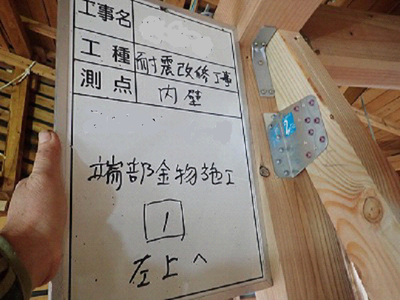 工事名
工種 耐震改修工事
測点 内壁
端部金物施工
1
左上へ